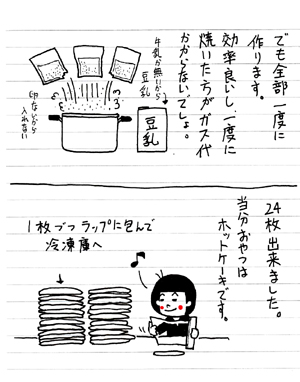 でも全部一度に
作ります。
効率良いし一度に
焼いた方がガス代
かからないでしょ。
牛乳が無いから
豆乳
豆乳
卵ないから
入れない
24枚出来ました。
当分おやつは
ホットケーキです。
1枚づつラップに包んで
冷凍庫へ